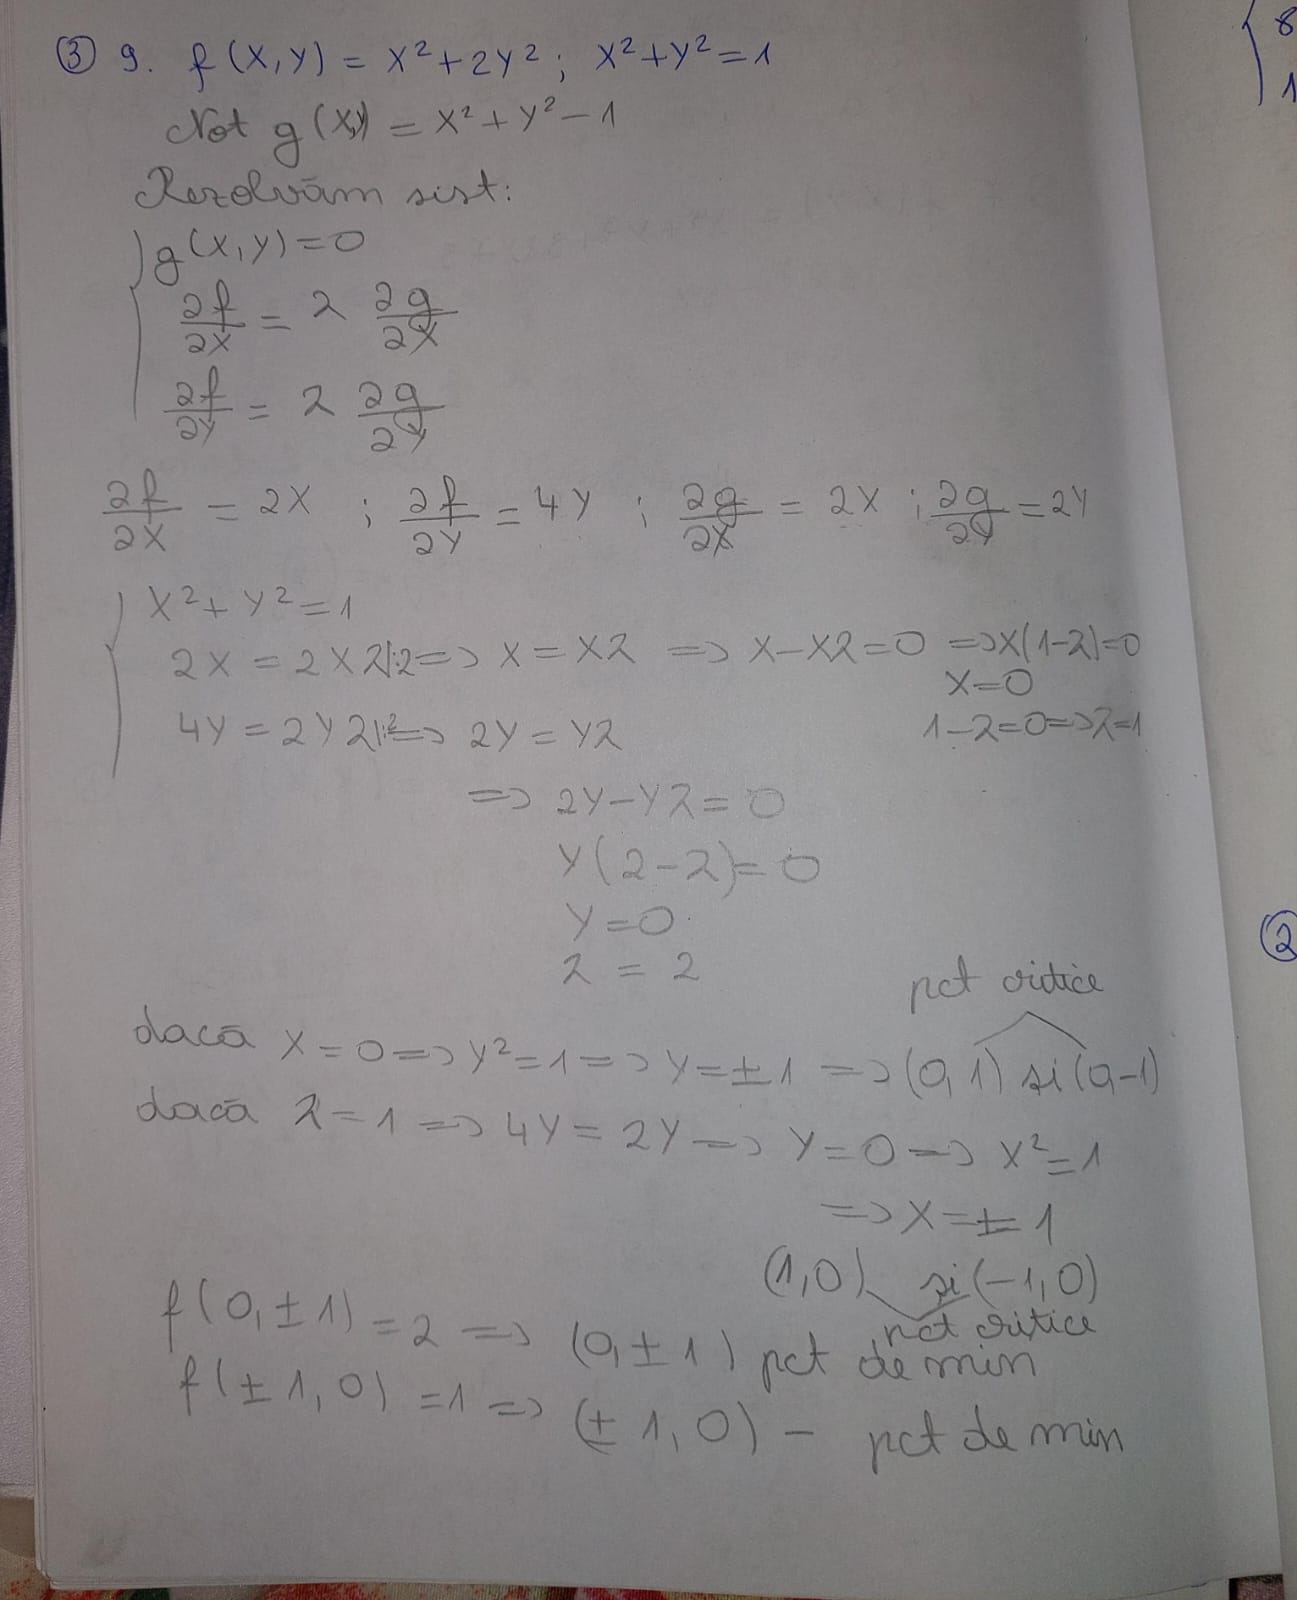 ③ 9. f(x,y) = x²+2y²; x²+y²=1
Not g(x,y) = x²+y²-1
Rezolvăm sist:
{ g(x,y)=0
∂f/∂x = λ ∂g/∂x
∂f/∂y = λ ∂g/∂y
∂f/∂x = 2x ; ∂f/∂y = 4y ; ∂g/∂x = 2x ; ∂g/∂y = 2y
{ x²+y²=1
2x = 2xλ |:2 => x = xλ => x-xλ=0 => x(1-λ)=0
x=0
4y = 2yλ |:2 => 2y = yλ
1-λ=0 => λ=1
=> 2y-yλ=0
y(2-λ)=0
y=0
λ = 2
pct critice
dacă x=0 => y²=1 => y=±1 => (0,1) si (0,-1)
dacă λ=1 => 4y = 2y => y=0 => x²=1
=> x=±1
(1,0) și (-1,0)
pct critice
f(0,±1) = 2 => (0,±1) pct de min
f(±1,0) =1 => (±1,0) - pct de min
{ 8
1
②